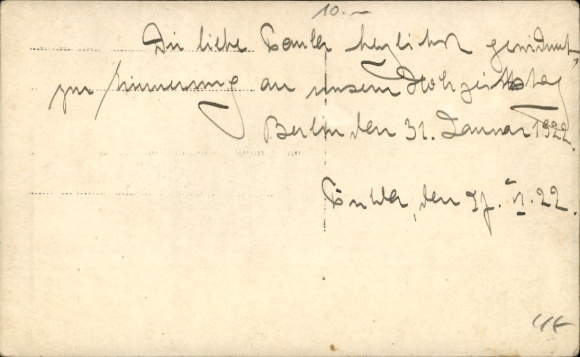 10.-
Dir liebe herzlichst gewidmet,
zur Erinnerung an unsern Hochzeitstag
Berlin den 31. Januar 1922.
den 1.22.